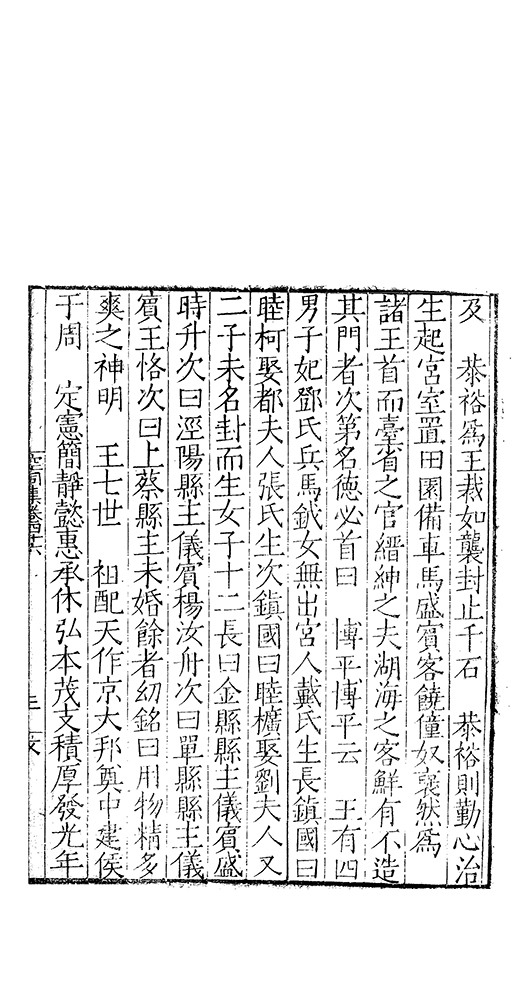 及　恭裕爲王裁如襲封止千石　恭裕則勤心治
生起宮室置田園備車馬盛賓客饒僮奴裒然爲
諸王首而臺省之官縉紳之夫湖海之客鮮有不造
其門者次第名德必首曰　博平博平云　王有四
男子妃鄧氏兵馬鉞女無出宮人戴氏生長鎮國曰
睦柯娶都夫人張氏生次鎮國曰睦㰌娶劉夫人又
二子未名封而生女子十二長曰金縣縣主儀賓盛
時升次曰涇陽縣主儀賓楊汝舟次曰單縣縣主儀
賓王恪次曰上蔡縣主未婚餘者幼銘曰用物精多
爽之神明　王七世　祖配天作京大邦奠中建侯
于周　定憲簡靜懿惠承休弘本茂支積厚發光年
空同集卷四十六
三